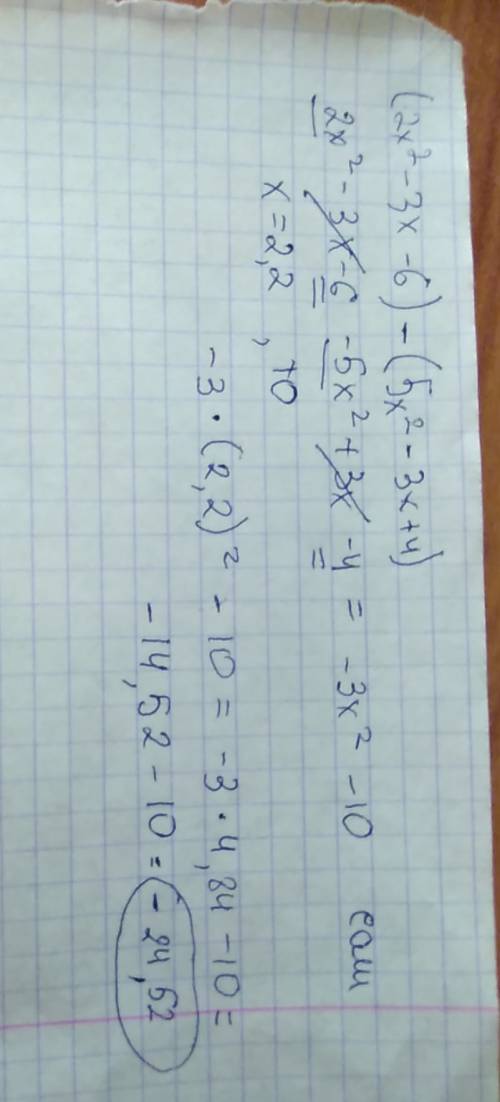 (2x² - 3x - 6) - (5x² - 3x + 4)
2x² - 3x - 6 - 5x² + 3x - 4 = -3x² - 10 если
x = 2,2, то
-3 · (2,2)² - 10 = -3 · 4,84 - 10 =
-14,52 - 10 = -24,52